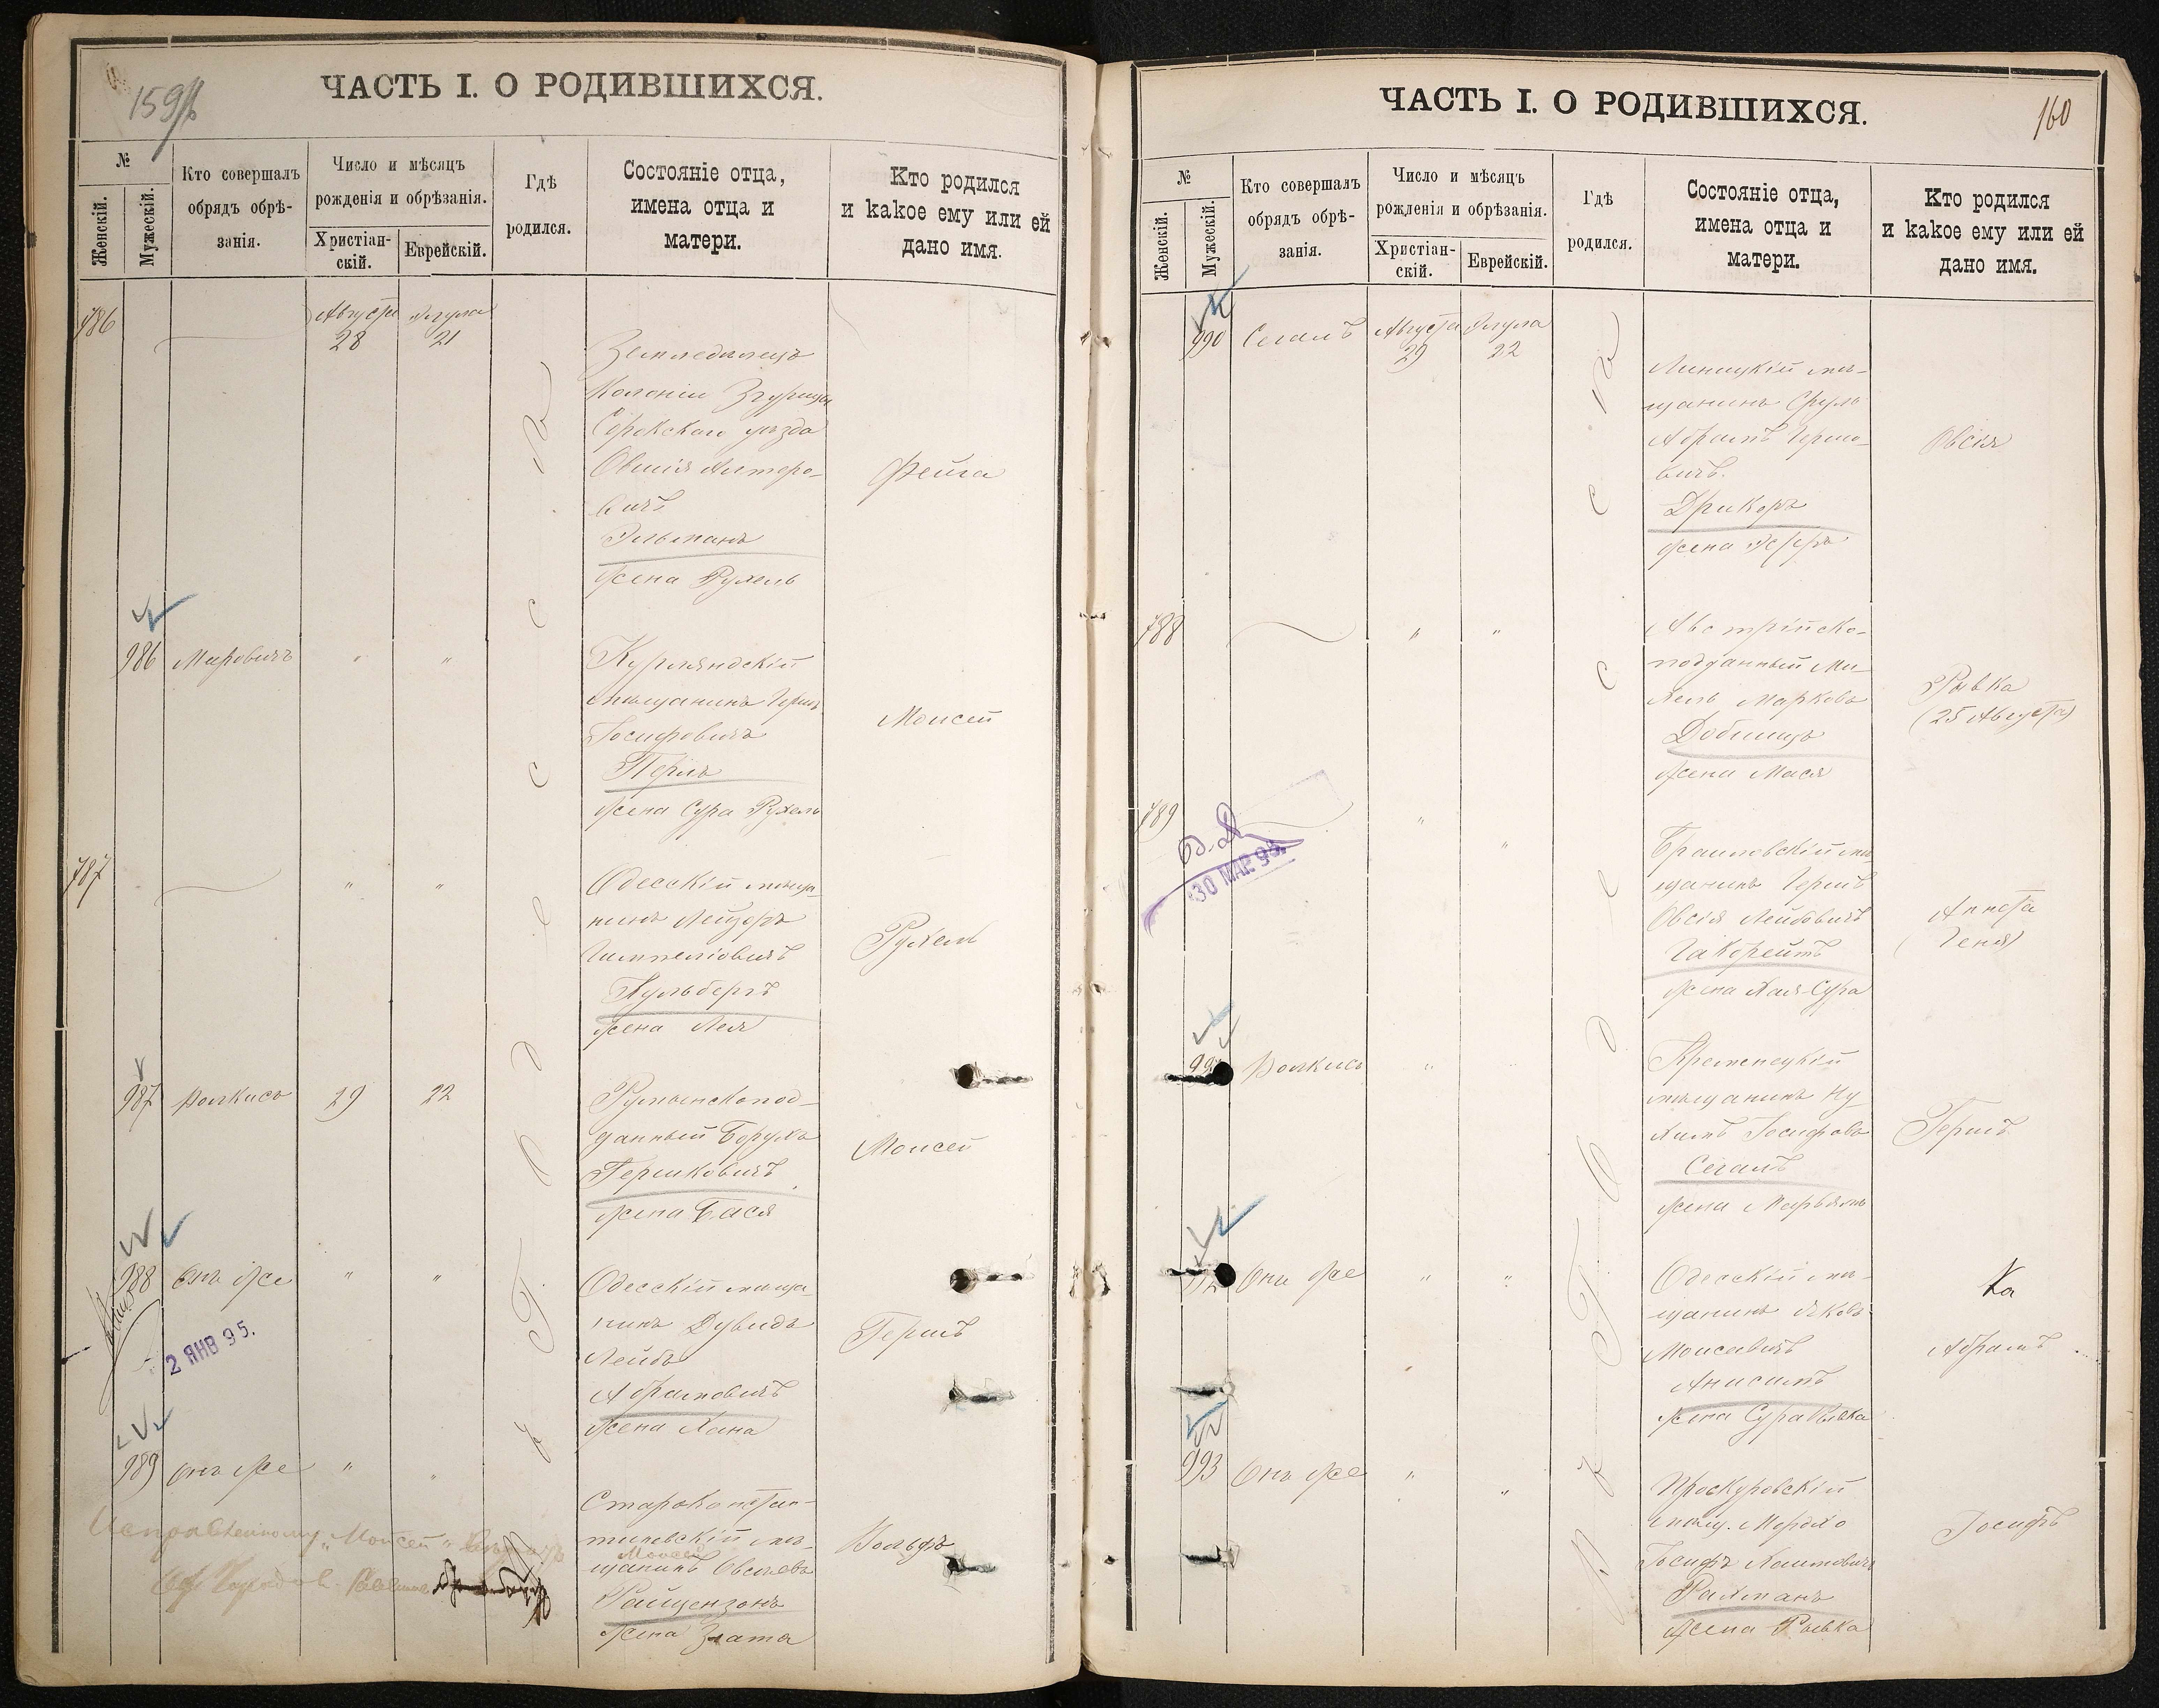 159
ЧАСТЬ I. О РОДИВШИХСЯ.
№
Женскій.
Мужескій.
Кто совершалъ
обрядъ обрѣ-
занія.
Число и мѣсяцъ
рожденія и обрѣзанія.
Христіан-
скій.
Еврейскій.
Гдѣ
родился.
Состояніе отца,
имена отца и
матери.
Кто родился
и какое ему или ей
дано имя.
786
Августа
28
Элула
21
Земледѣлецъ
Колоніи Згурица
Сорокскаго уѣзда
Овшія Алтеро-
вичъ
Эльманъ
жена Рухель
Фейга
986 Мировичъ " "
Курляндскій
мѣщанинъ Герш
Іосифовичъ
Перль
жена Сура Рухель
Моисей
787 " "
Одесскій мѣща-
нинъ Лейзеръ
Гимпеліовичъ
Кульбергъ
жена Лея
Рухель
987 Волкисъ 29 22
Румынскопод-
данный Борухъ
Гершковичъ
жена Бася
Моисей
988 Онъ же " "
Одесскій мѣща-
нинъ Дувидъ
Лейбъ
Абрамовичъ
жена Хана
Гершъ
2 ЯНВ 95.
989 Онъ же " "
Староконстан-
тиновскій мѣ-
Моисей
щанинъ Овсѣевъ
Вайцензонъ
жена Злата
Вольфъ
Исправленному "Моисей" вѣрить
въ Г. Одессѣ
160
ЧАСТЬ I. О РОДИВШИХСЯ.
№
Женскій.
Мужескій.
Кто совершалъ
обрядъ обрѣ-
занія.
Число и мѣсяцъ
рожденія и обрѣзанія.
Христіан-
скій.
Еврейскій.
Гдѣ
родился.
Состояніе отца,
имена отца и
матери.
Кто родился
и какое ему или ей
дано имя.
990 Сегалъ
Августа
29
Элула
22
Линицкій мѣ-
щанинъ Сруль
Абрамъ Гершо-
вичъ
Дрикеръ
жена Эстеръ
Овсія
788 " "
Австрійско-
подданный Ми-
хель Марковъ
Добишъ
жена Мася
Рывка
(25 Августа)
789 " "
30 МАР.
Браиловскій мѣ
щанинъ Гершъ
Овсія Лейбовичъ
Гакрейтъ
жена Хая-Сура
Аннета
(Геня)
991 Волкисъ " "
Кременецкій
мѣщанинъ Ну
химъ Іосифовъ
Сегалъ
жена Марьямъ
Гершъ
992 Онъ же " "
Одесскій мѣ-
щанинъ Яковъ
Моисеевичъ
Анисимъ
жена Сура Рывка
Ка
Абрамъ
993 Онъ же " "
Проскуровскій
мѣщ. Мордко
Іосифъ Хаимовичъ
Рахманъ
жена Рывка
Іосифъ
въ Г. Одессѣ